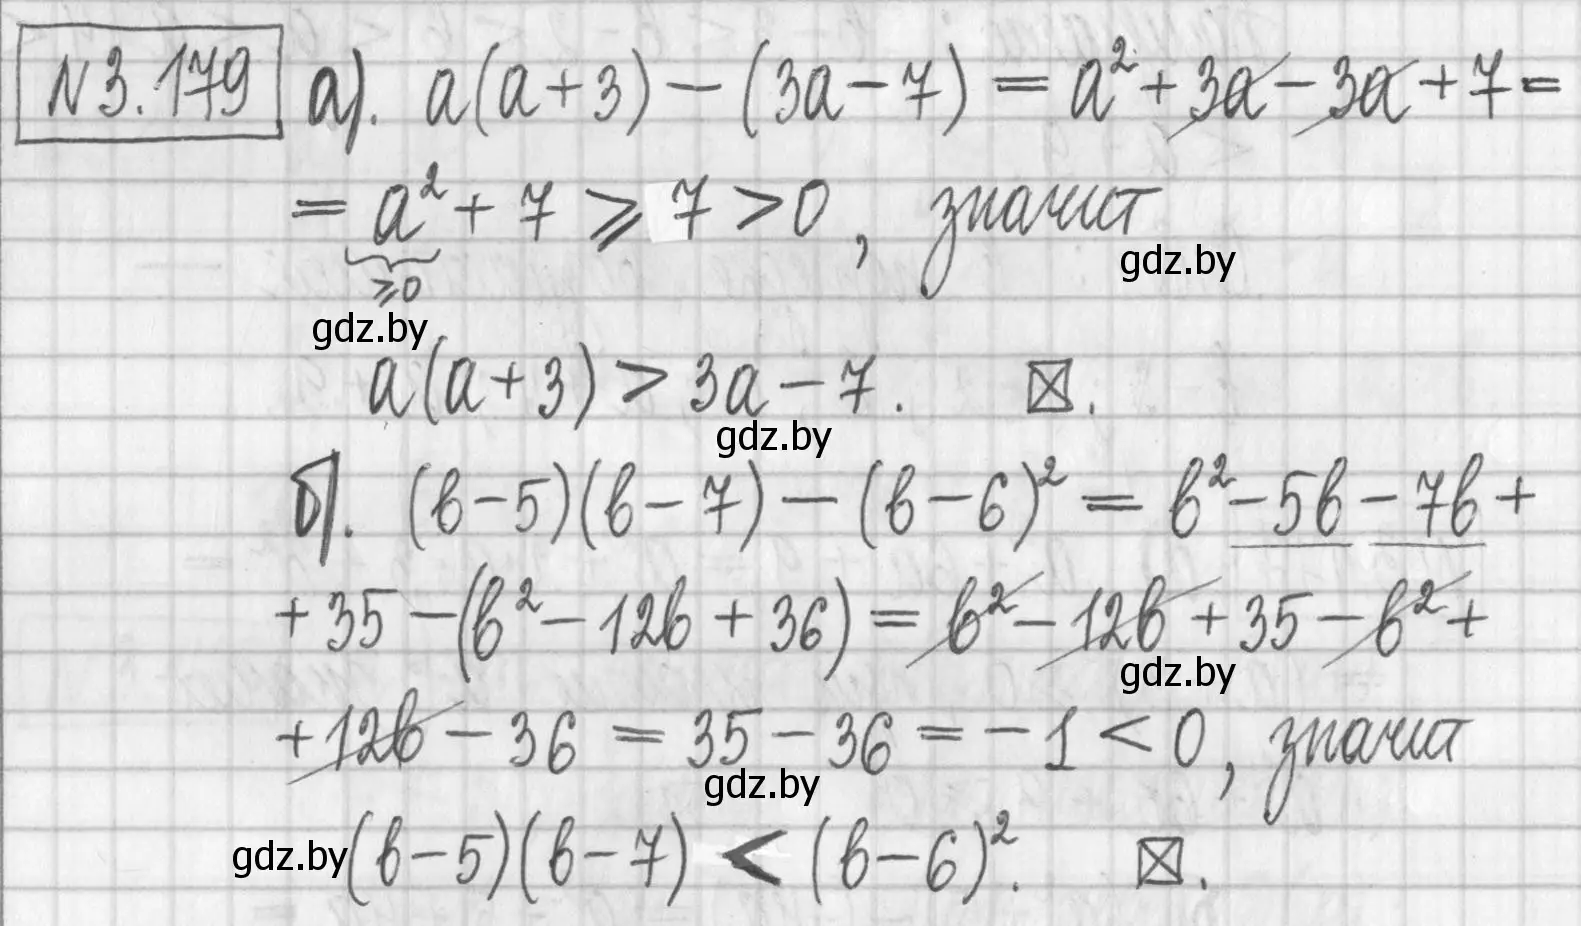 N 3.179 а). a(a+3)-(3a-7)=a²+3a-3a+7=
=a²+7⩾7>0, значит
⩾0
gdz.by
gdz.by
a(a+3)>3a-7. ☒.
gdz.by
б). (b-5)(b-7)-(b-6)²=b²-5b-7b+
+35-(b²-12b+36)=b²-12b+35-b²+
gdz.by
+12b-36=35-36=-1<0, значит
gdz.by
gdz.by (b-5)(b-7)<(b-6)². ☒.